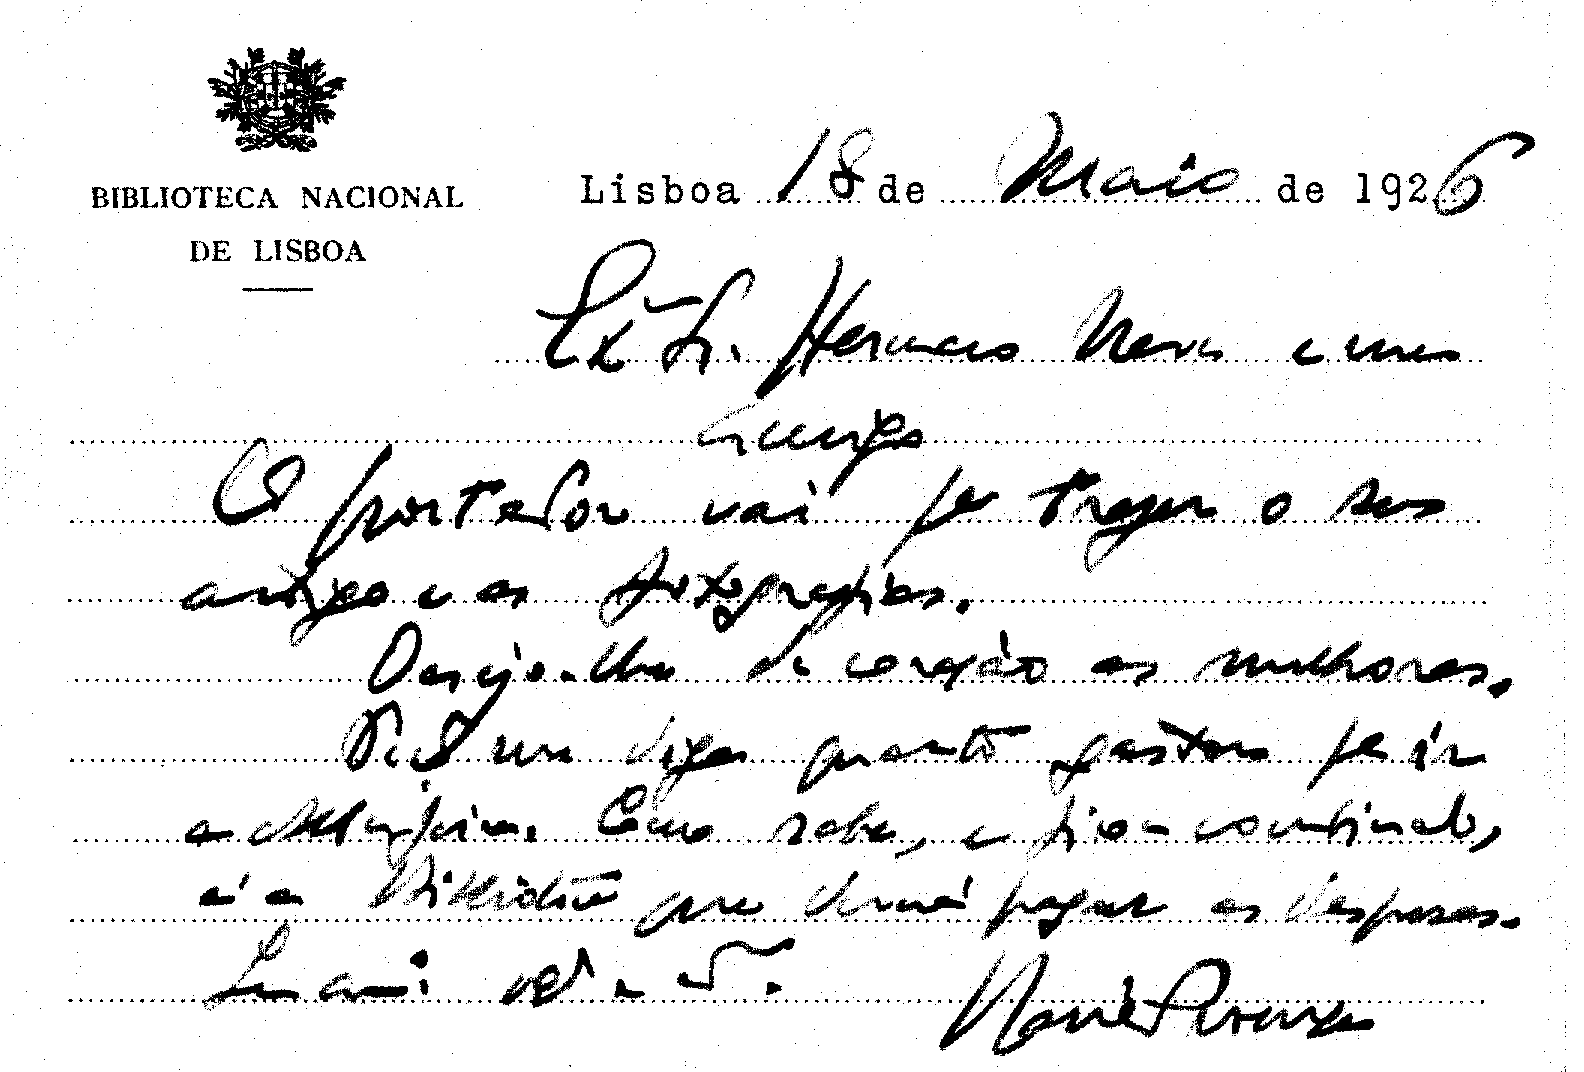 BIBLIOTECA NACIONAL
DE LISBOA
Lisboa 18 de Maio de 1926
Exº Sr. Hermano Neves e meu
amigo
O portador vai pª trazer o seu
artigo e as fotografias.
Desejo-lhe de coração as melhoras.
Peço me diga quanto gastou pª ir
a Alcobaça. Como sabe, e ficou combinado,
é a Biblioteca que deverá pagar as despesas.